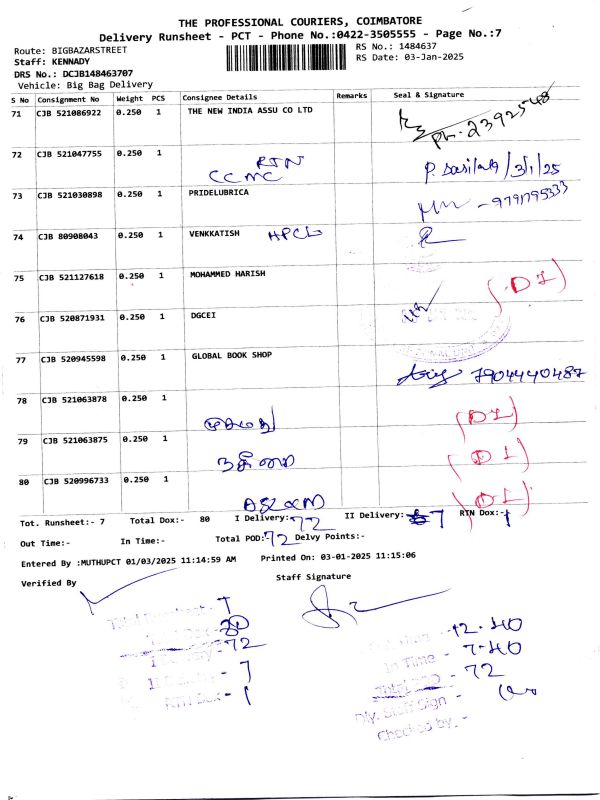 THE PROFESSIONAL COURIERS, COIMBATORE
Delivery Runsheet - PCT - Phone No.:0422-3505555 - Page No.:7
Route: BIGBAZARSTREET RS No.: 1484637
Staff: KENNADY RS Date: 03-Jan-2025
DRS No.: DCJB148463707
Vehicle: Big Bag Delivery
S No Consignment No Weight PCS Consignee Details Remarks Seal & Signature
71 CJB 521086922 0.250 1 THE NEW INDIA ASSU CO LTD
Ph. 2392548
72 CJB 521047755 0.250 1 RTN
CCMC 3/1/25
73 CJB 521030898 0.250 1 PRIDELUBRICA - 9791795333
74 CJB 80908043 0.250 1 VENKKATISH HPCL
75 CJB 521127618 0.250 1 MOHAMMED HARISH (D1)
76 CJB 520871931 0.250 1 DGCEI
77 CJB 520945598 0.250 1 GLOBAL BOOK SHOP
7904440487
78 CJB 521063878 0.250 1 (D1)
79 CJB 521063875 0.250 1 (D1)
80 CJB 520996733 0.250 1 (D1)
Tot. Runsheet:- 7 Total Dox:- 80 I Delivery: 72 II Delivery: 7 RTN Dox:- 1
Out Time:- In Time:- Total POD:- 72 Delvy Points:-
Entered By :MUTHUPCT 01/03/2025 11:14:59 AM Printed On: 03-01-2025 11:15:06
Verified By Staff Signature
Total Runsheet - 7
80
72
7
RTN Dox - 1
- 12.40
In Time - 7.40
Total POD - 72
Dly. Staff Sign -
Checked by -